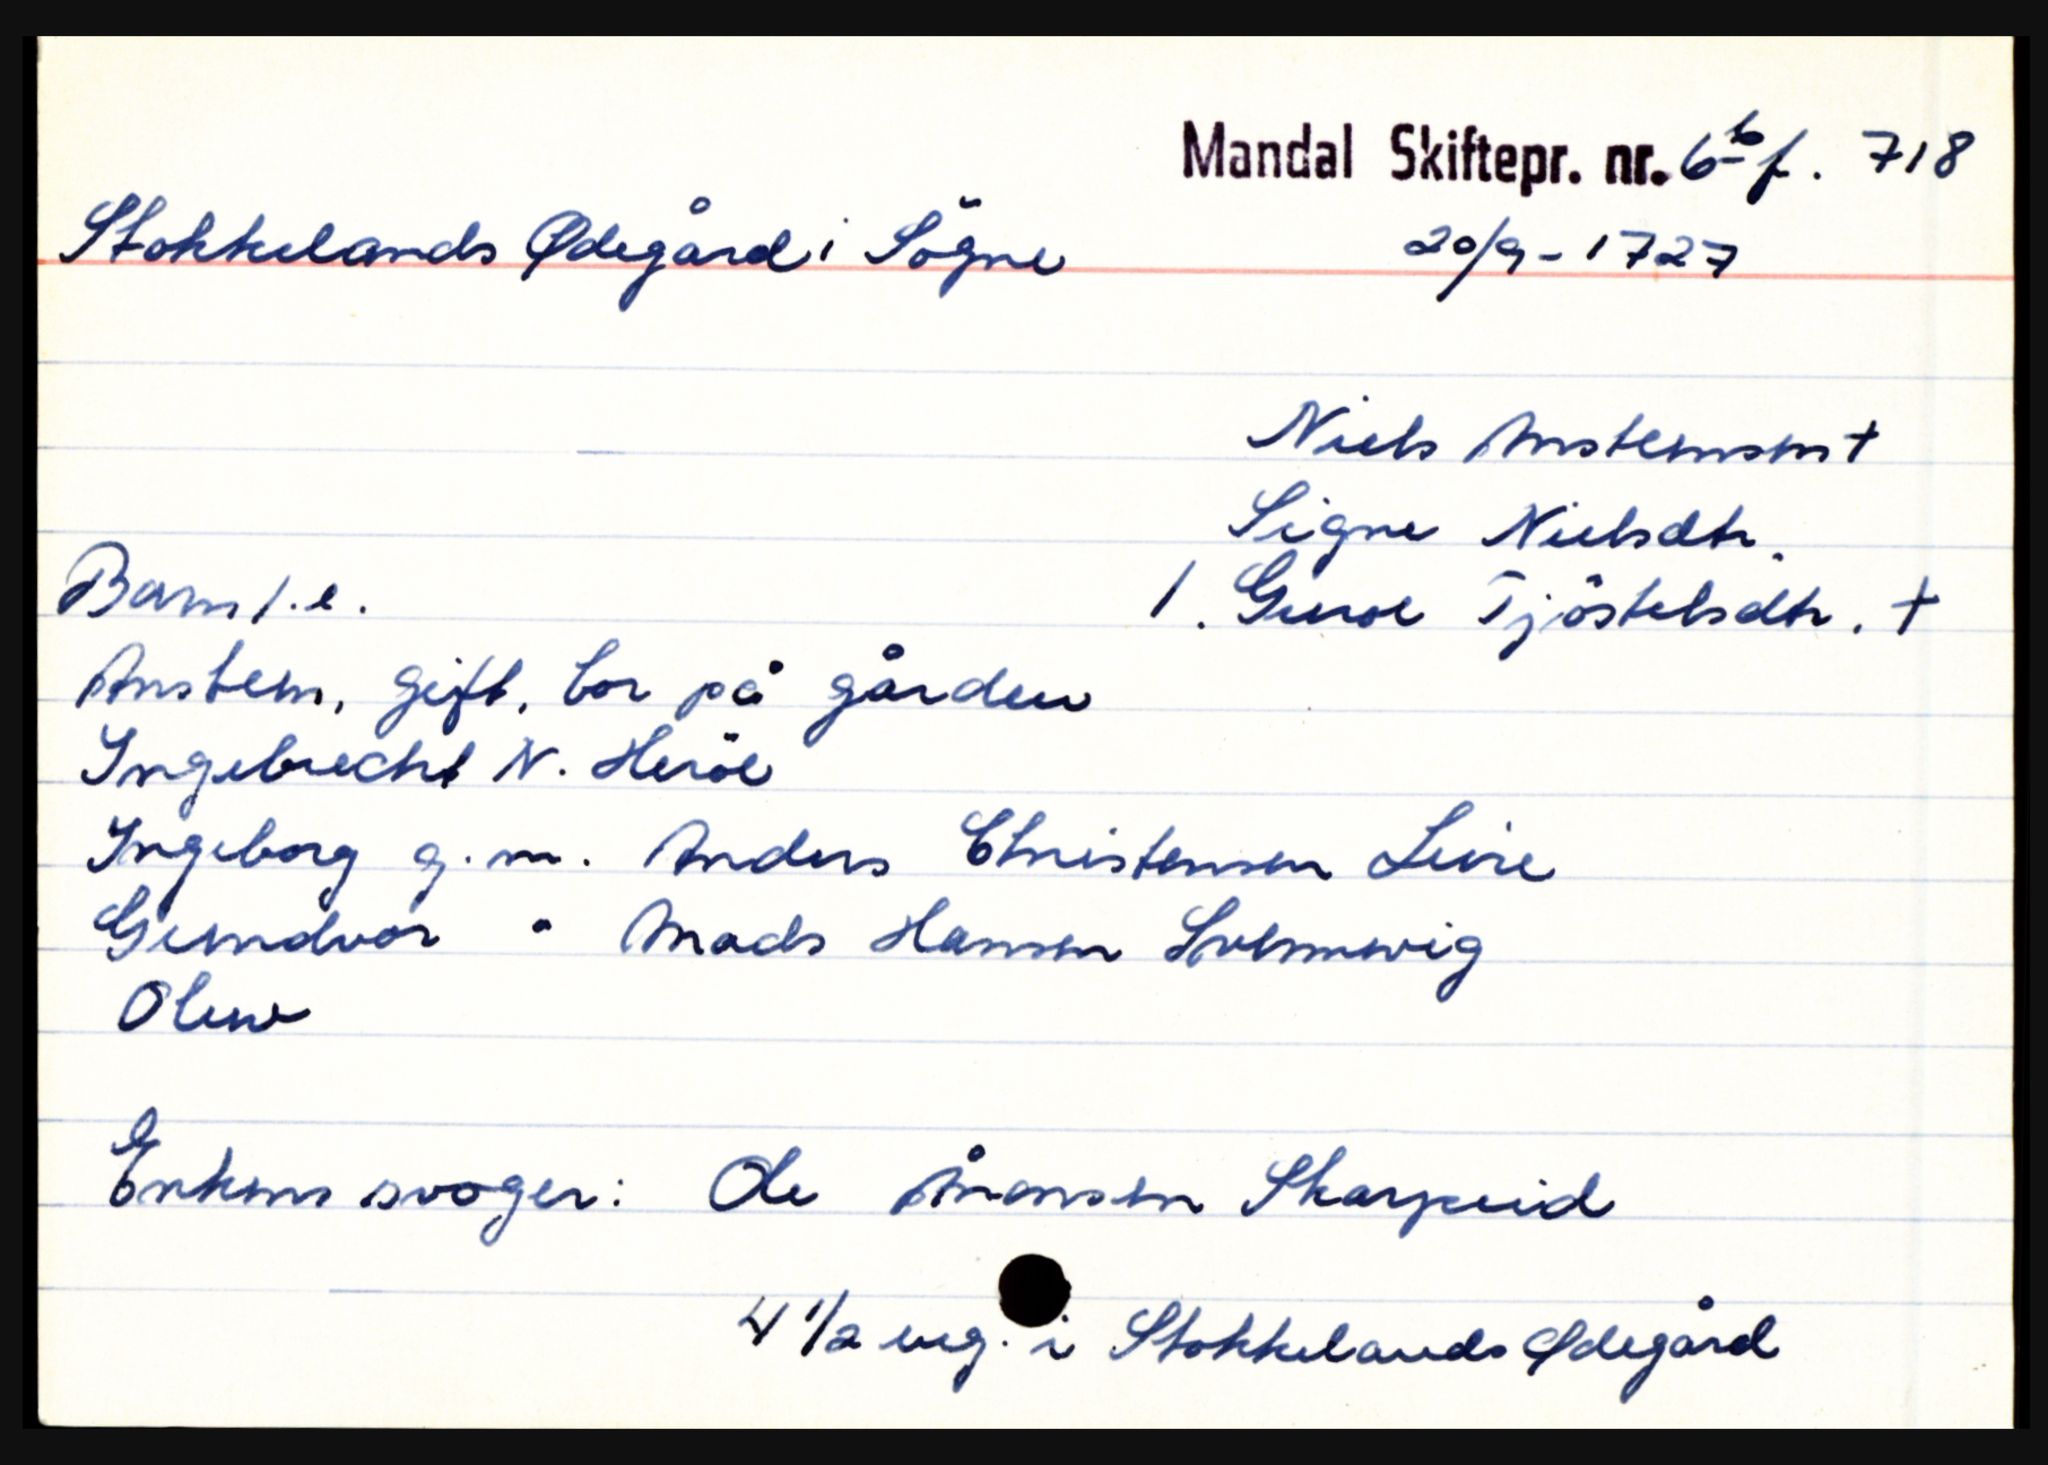 Mandal Skiftepr. nr. 6 b f. 718
Stokkelands Ødegård i Sögne 20/9 - 1727
Niels Anstensen †
Signe Nielsdtr.
Barn 1. e. 1. Guroe Tjöstelsdtr. †
Ansten, gift, bor på gården
Ingebrecht N. Heröe
Ingeborg g. m. Anders Christensen Leire
Gundvor " Mads Hansen
Olew
Enkens svoger: Ole Ånonsen Skarpeid
4 1/2 eng. i Stokkelands Ødegård